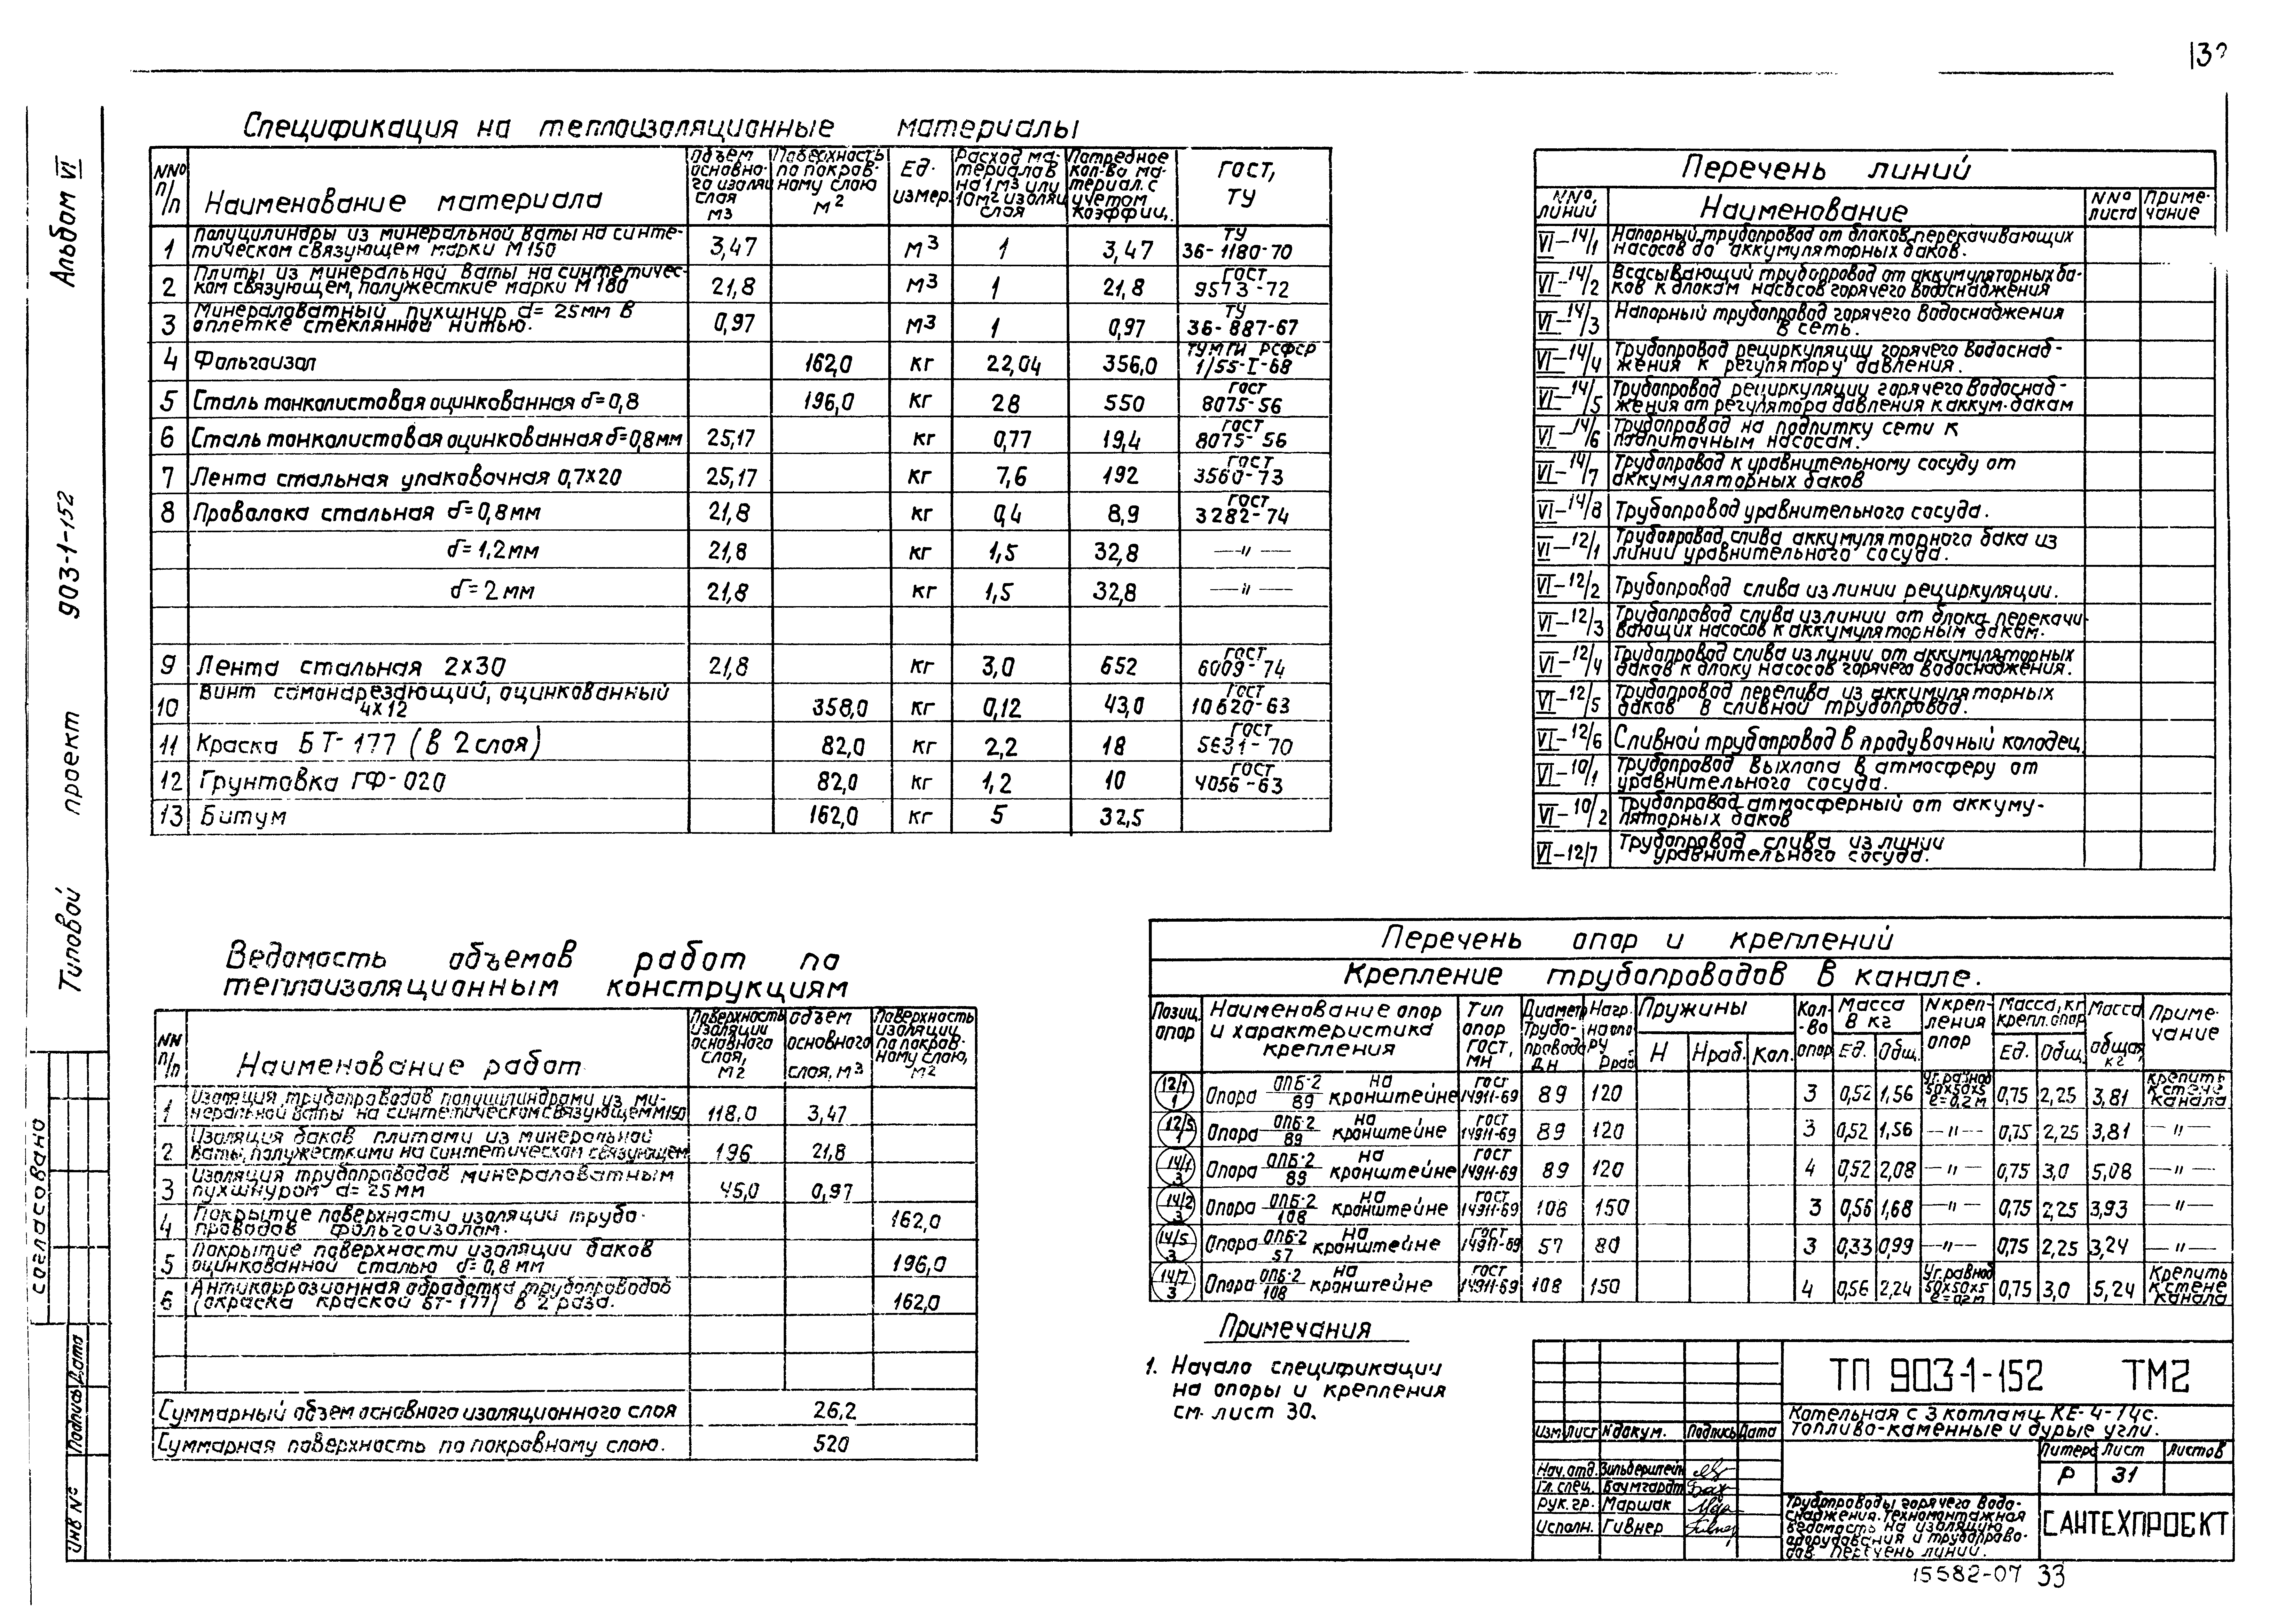 13
Альбом VI
Типовой проект 903-1-152
согласовано
Подпись Дата
Инв №
Спецификация на теплоизоляционные материалы
NNº п/п | Наименование материала | Объем основно-го изоляц слоя м3 | Поверхность по покров-ному слою м2 | Ед. измер. | Расход ма-териалов на 1 м3 или 10 м2 изоляц слоя | Потребное кол-во ма-териал. с учетом коэффиц. | ГОСТ, ТУ
1 | Полуцилиндры из минеральной ваты на синте-тическом связующем марки М150 | 3,47 | | м3 | 1 | 3,47 | ТУ 36-1180-70
2 | Плиты из минеральной ваты на синтетичес-ком связующем, полужесткие марки М180 | 21,8 | | м3 | 1 | 21,8 | ГОСТ 9573-72
3 | Минераловатный пухшнур d=25мм в оплетке стеклянной нитью. | 0,97 | | м3 | 1 | 0,97 | ТУ 36-887-67
4 | Фольгоизол | | 162,0 | кг | 22,04 | 356,0 | ТУМГИ РСФСР 1/55-I-68
5 | Сталь тонколистовая оцинкованная δ=0,8 | | 196,0 | кг | 28 | 550 | ГОСТ 8075-56
6 | Сталь тонколистовая оцинкованная δ=0,8мм | 25,17 | | кг | 0,77 | 19,4 | ГОСТ 8075-56
7 | Лента стальная упаковочная 0,7х20 | 25,17 | | кг | 7,6 | 192 | ГОСТ 3560-73
8 | Проволока стальная δ=0,8мм | 21,8 | | кг | 0,4 | 8,9 | ГОСТ 3282-74
δ=1,2мм | 21,8 | | кг | 1,5 | 32,8 | —"—
δ=2мм | 21,8 | | кг | 1,5 | 32,8 | —"—
9 | Лента стальная 2х30 | 21,8 | | кг | 3,0 | 652 | ГОСТ 6009-74
10 | Винт самонарезающий, оцинкованный 4х12 | | 358,0 | кг | 0,12 | 43,0 | ГОСТ 10620-63
11 | Краска БТ-177 (в 2 слоя) | | 82,0 | кг | 2,2 | 18 | ГОСТ 5631-70
12 | Грунтовка ГФ-020 | | 82,0 | кг | 1,2 | 10 | ГОСТ 4056-63
13 | Битум | | 162,0 | кг | 5 | 32,5
Перечень линий
NNº, линий | Наименование | NNº листа | Приме-чание
VI-14/1 | Напорный трубопровод от блоков перекачивающих насосов до аккумуляторных баков.
VI-14/2 | Всасывающий трубопровод от аккумуляторных ба-ков к блокам насосов горячего водоснабжения
VI-14/3 | Напорный трубопровод горячего водоснабжения в сеть.
VI-14/4 | Трубопровод рециркуляции горячего водоснаб-жения к регулятору давления.
VI-14/5 | Трубопровод рециркуляции горячего водоснаб-жения от регулятора давления к аккум. бакам
VI-14/6 | Трубопровод на подпитку сети к подпиточным насосам.
VI-14/7 | Трубопровод к уравнительному сосуду от аккумуляторных баков
VI-14/8 | Трубопровод уравнительного сосуда.
VI-12/1 | Трубопровод слива аккумуляторного бака из линии уравнительного сосуда.
VI-12/2 | Трубопровод слива из линии рециркуляции.
VI-12/3 | Трубопровод слива из линии от блока перекачи-вающих насосов к аккумуляторным бакам.
VI-12/4 | Трубопровод слива из линии от аккумуляторных баков к блоку насосов горячего водоснабжения.
VI-12/5 | Трубопровод перелива из аккумуляторных баков в сливной трубопровод.
VI-12/6 | Сливной трубопровод в продувочный колодец.
VI-10/1 | Трубопровод выхлопа в атмосферу от уравнительного сосуда.
VI-10/2 | Трубопровод атмосферный от аккуму-ляторных баков
VI-12/7 | Трубопровод слива из линии уравнительного сосуда.
Ведомость объемов работ по
теплоизоляционным конструкциям
NN п/п | Наименование работ | Поверхность изоляции основного слоя, м2 | Объем основного слоя, м3 | Поверхность изоляции по покров-ному слою, м2
1 | Изоляция трубопроводов полуцилиндрами из ми-неральной ваты на синтетическом связующем М150 | 118.0 | 3,47
2 | Изоляция баков плитами из минеральной ваты, полужесткими на синтетическом связующем | 196 | 21,8
3 | Изоляция трубопроводов минераловатным пухшнуром d=25мм | 45,0 | 0,97
4 | Покрытие поверхности изоляции трубо-проводов фольгоизолом. | | | 162,0
5 | Покрытие поверхности изоляции баков оцинкованной сталью δ=0,8мм | | | 196,0
6 | Антикоррозионная обработка трубопроводов (окраска краской БТ-177) в 2 раза. | | | 162,0
Суммарный объем основного изоляционного слоя | 26,2
Суммарная поверхность по покровному слою. | 520
Перечень опор и креплений
Крепление трубопроводов в канале.
Позиц. опор | Наименование опор и характеристика крепления | Тип опор ГОСТ, МН | Диаметр трубо-провода Дн | Нагр. на опо-ру Рраб | Пружины Н | Нраб. | Кол. | Кол-во опор | Масса в кг Ед. | Общ. | N креп-ления опор | Масса, кг крепл. опор Ед. | Общ. | Масса общая, кг | Приме-чание
12/1 1 | Опора ОПБ-2/89 на кронштейне | ГОСТ 14911-69 | 89 | 120 | 3 | 0,52 | 1,56 | Уг. равноб 50х50х5 ℓ=0,2м | 0,75 | 2,25 | 3,81 | Крепить к стене канала
12/5 1 | Опора ОПБ-2/89 на кронштейне | ГОСТ 14911-69 | 89 | 120 | 3 | 0,52 | 1,56 | —"— | 0,75 | 2,25 | 3,81 | —"—
14/1 3 | Опора ОПБ-2/89 на кронштейне | ГОСТ 14911-69 | 89 | 120 | 4 | 0,52 | 2,08 | —"— | 0,75 | 3,0 | 5,08 | —"—
14/2 3 | Опора ОПБ-2/108 на кронштейне | ГОСТ 14911-69 | 108 | 150 | 3 | 0,56 | 1,68 | —"— | 0,75 | 2,25 | 3,93 | —"—
14/5 3 | Опора ОПБ-2/57 на кронштейне | ГОСТ 14911-69 | 57 | 80 | 3 | 0,33 | 0,99 | —"— | 0,75 | 2,25 | 3,24 | —"—
14/7 3 | Опора ОПБ-2/108 на кронштейне | ГОСТ 14911-69 | 108 | 150 | 4 | 0,56 | 2,24 | Уг. равноб 50х50х5 ℓ=0,2м | 0,75 | 3,0 | 5,24 | Крепить к стене канала
Примечания
1. Начало спецификации
на опоры и крепления
см. лист 30.
ТП 903-1-152 ТМ2
Котельная с 3 котлами КЕ-4-14с.
Топливо-каменные и бурые угли.
Изм Лист N докум. Подпись Дата
Литера Лист Листов
Р 31
Нач. отд. Зильберштейн
Гл. спец. Баумгардт
Рук. гр. Маршак
Исполн. Гивнер
Трубопроводы горячего водо-
снабжения. Техномонтажная
ведомость на изоляцию
оборудования и трубопрово-
дов. Перечень линий.
САНТЕХПРОЕКТ
15582-07 33